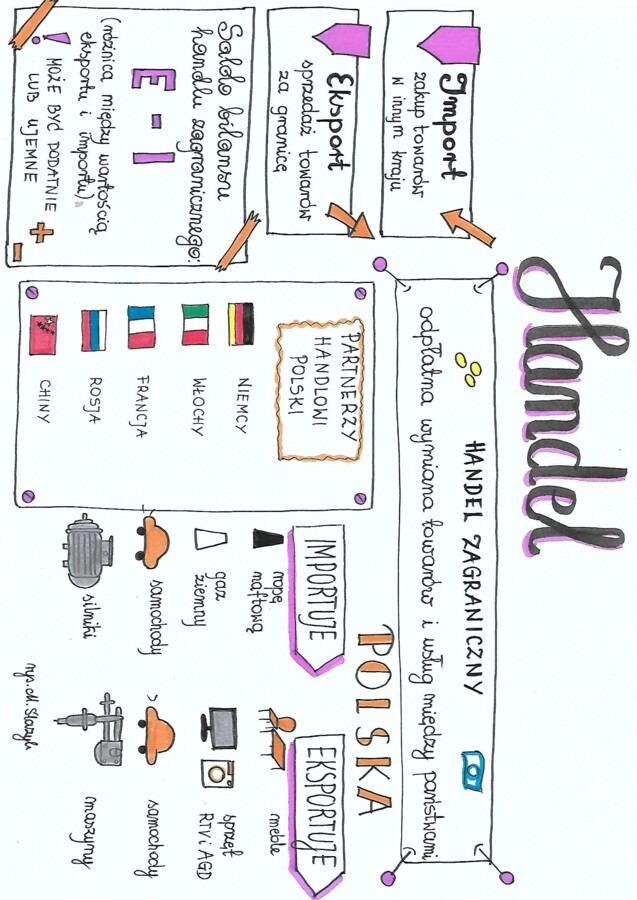 Handel
HANDEL ZAGRANICZNY
odpłatna wymiana towarów i usług między państwami
Import
zakup towarów
w innym kraju
Eksport
sprzedaż towarów
za granicę
Saldo bilansu
handlu zagranicznego:
E - I
(różnica między wartością
eksportu i importu)
! MOŻE BYĆ DODATNIE +
LUB UJEMNE -
PARTNERZY
HANDLOWI
POLSKI
NIEMCY
WŁOCHY
FRANCJA
ROSJA
CHINY
POLSKA
IMPORTUJE
ropę
naftową
gaz
ziemny
samochody
silniki
EKSPORTUJE
meble
sprzęt
RTV i AGD
samochody
maszyny